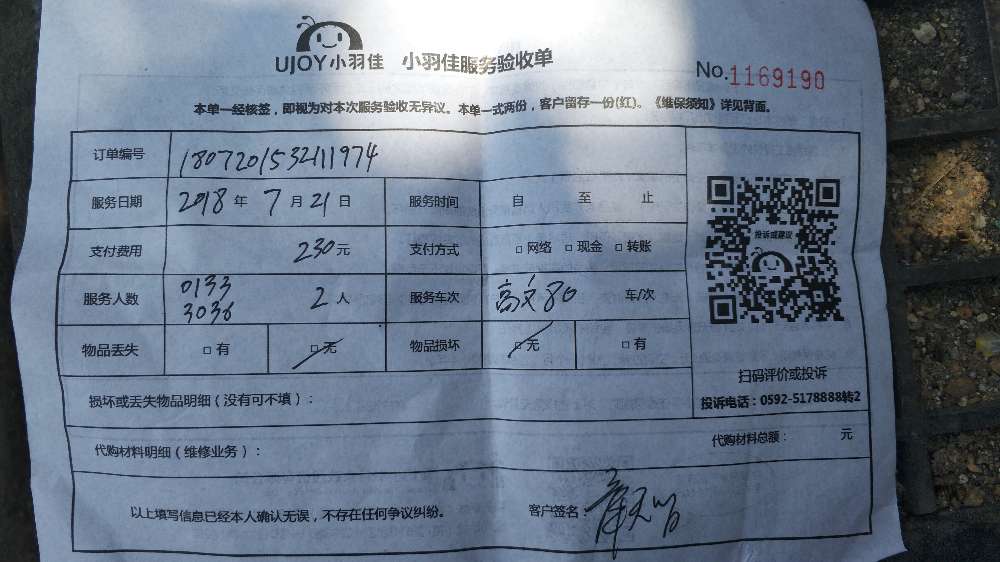 UJOY小羽佳 小羽佳服务验收单
No.1169190
本单一经核签，即视为对本次服务验收无异议。本单一式两份，客户留存一份(红)。《维保须知》详见背面。
订单编号 180720153211974
服务日期 2018 年 7 月 21 日 服务时间 自 至 止
支付费用 230 元 支付方式 □网络 □现金 □转账
服务人数 0133 3036 2 人 服务车次 80 车/次
物品丢失 □有 □无 物品损坏 □无 □有
投诉或建议
扫码评价或投诉
投诉电话：0592-5178888转2
损坏或丢失物品明细（没有可不填）：
代购材料明细（维修业务）： 代购材料总额： 元
以上填写信息已经本人确认无误，不存在任何争议纠纷。 客户签名：